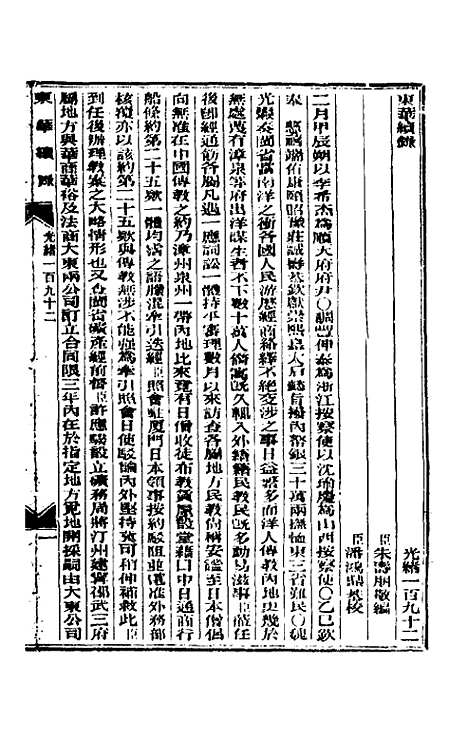 東華續錄
光緒一百九十二
臣朱壽朋敬編
臣潘鴻鼎恭校
二月甲辰朔以李希杰為順天府府尹○調豐伸泰為浙江按察使以沈瑜慶為山西按察使○乙巳欽
奉 慈禧端佑康頤昭豫莊誠壽恭欽獻崇熙皇太后懿旨撥內帑銀三十萬兩撫恤東三省難民○魏
光燾奏閩省為南洋之衝各國人民游歷經商絡繹不絕交涉之事日益繁多而洋人傳教內地更幾於
無處蔑有漳泉等府出洋謀生者不下數十萬人僑寓既久輒入外籍籍民教民既多動易滋事臣蒞任
後卽經通飭各屬凡遇一應詞訟一體持平審理數月以來訪查各屬地方民教尚稱安謐至日本僧侶
向無准在中國傳教之約乃漳州泉州一帶內地比來竟有日僧收徒布教賃屋設堂藉口中日通商行
船條約第二十五款一體均沾之語朦混牽引迭經臣照會駐廈門日本領事按約駁阻並電達外務部
核覆亦以該約第二十五款與傳教無涉不能強為牽引照會日使駁論內外堅持冀可稍伸補救此臣
到任後辦理教案之大略情形也又查閩省礦產經前督臣許應騤設立礦務局將汀州建寧邵武三府
屬地方與華商華裕及法商大東兩公司訂立合同限三年內在於指定地方覓地開採嗣由大東公司
東華續錄
光緒一百九十二
一